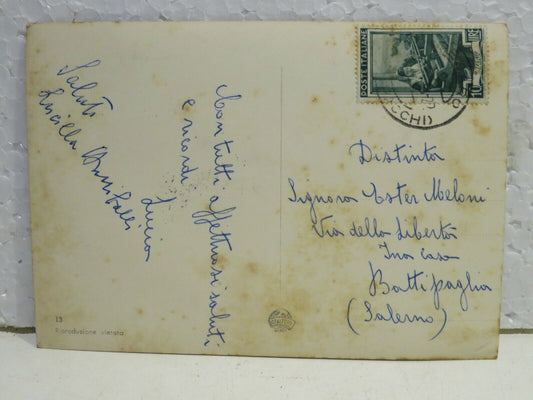 Saluti
Lucilla
Con tutti affettuosi saluti
e ricordi
Lucia
POSTE ITALIANE
10
Distinta
Signora Ester Meloni
Via della Libertà
Ina casa
Battipaglia
(Salerno)
13
Riproduzione vietata